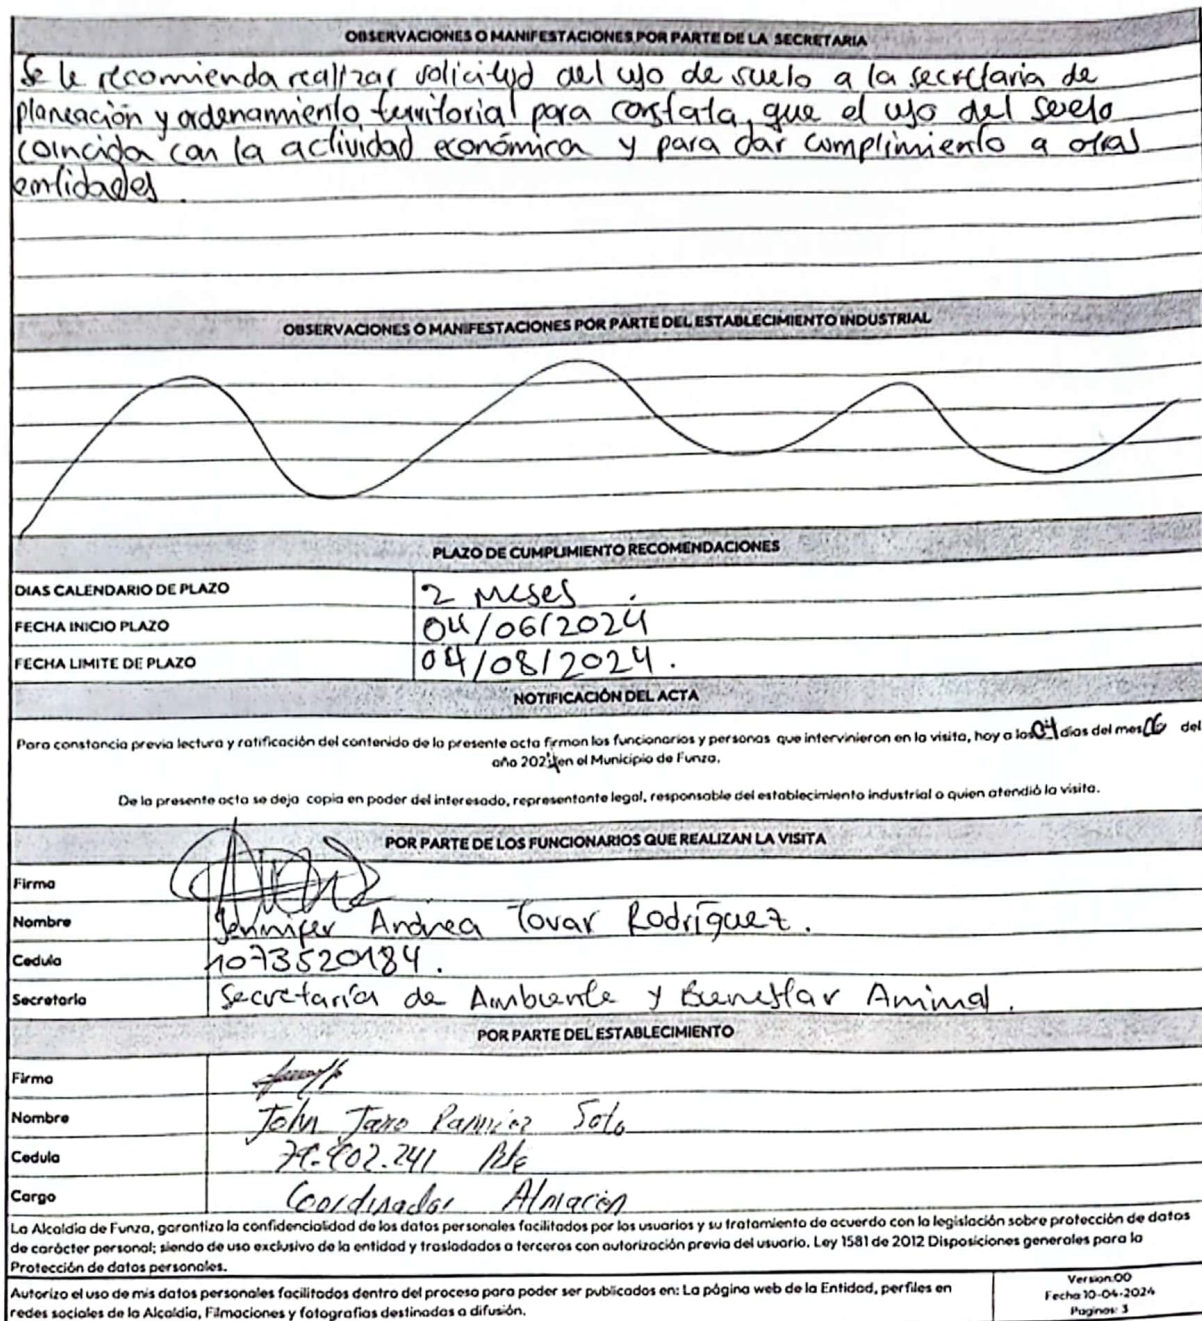 OBSERVACIONES O MANIFESTACIONES POR PARTE DE LA SECRETARIA
Se le recomienda realizar solicitud del uso de suelo a la secretaria de
planeación y ordenamiento territorial para constata, que el uso del suelo
coincida con la actividad económica y para dar cumplimiento a otras
entidades.
OBSERVACIONES O MANIFESTACIONES POR PARTE DEL ESTABLECIMIENTO INDUSTRIAL
PLAZO DE CUMPLIMIENTO RECOMENDACIONES
DIAS CALENDARIO DE PLAZO 2 Meses.
FECHA INICIO PLAZO 04/06/2024
FECHA LIMITE DE PLAZO 04/08/2024.
NOTIFICACIÓN DEL ACTA
Para constancia previa lectura y ratificación del contenido de la presente acta firman los funcionarios y personas que intervinieron en la visita, hoy a los 04 dias del mes 06 del
año 2024 en el Municipio de Funza.
De la presente acta se deja copia en poder del interesado, representante legal, responsable del establecimiento industrial o quien atendió la visita.
POR PARTE DE LOS FUNCIONARIOS QUE REALIZAN LA VISITA
Firma
Nombre Jennifer Andrea Tovar Rodríguez.
Cedula 1073520184.
Secretaria Secretaría de Ambiente y Bienestar Animal.
POR PARTE DEL ESTABLECIMIENTO
Firma
Nombre John Ramirez Soto
Cedula
Cargo Coordinador Almacén
La Alcaldía de Funza, garantiza la confidencialidad de los datos personales facilitados por los usuarios y su tratamiento de acuerdo con la legislación sobre protección de datos
de carácter personal; siendo de uso exclusivo de la entidad y trasladados a terceros con autorización previa del usuario. Ley 1581 de 2012 Disposiciones generales para la
Protección de datos personales.
Autorizo el uso de mis datos personales facilitados dentro del proceso para poder ser publicados en: La página web de la Entidad, perfiles en
redes sociales de la Alcaldía, Filmaciones y fotografías destinadas a difusión.
Version:00
Fecha 10-04-2024
Paginas: 3